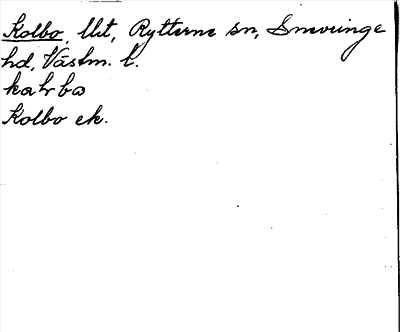 Kolbo, Ut, Rytterne sn, Snevringe
hd, Västm. l.
kalrbo
Kolbo ek.